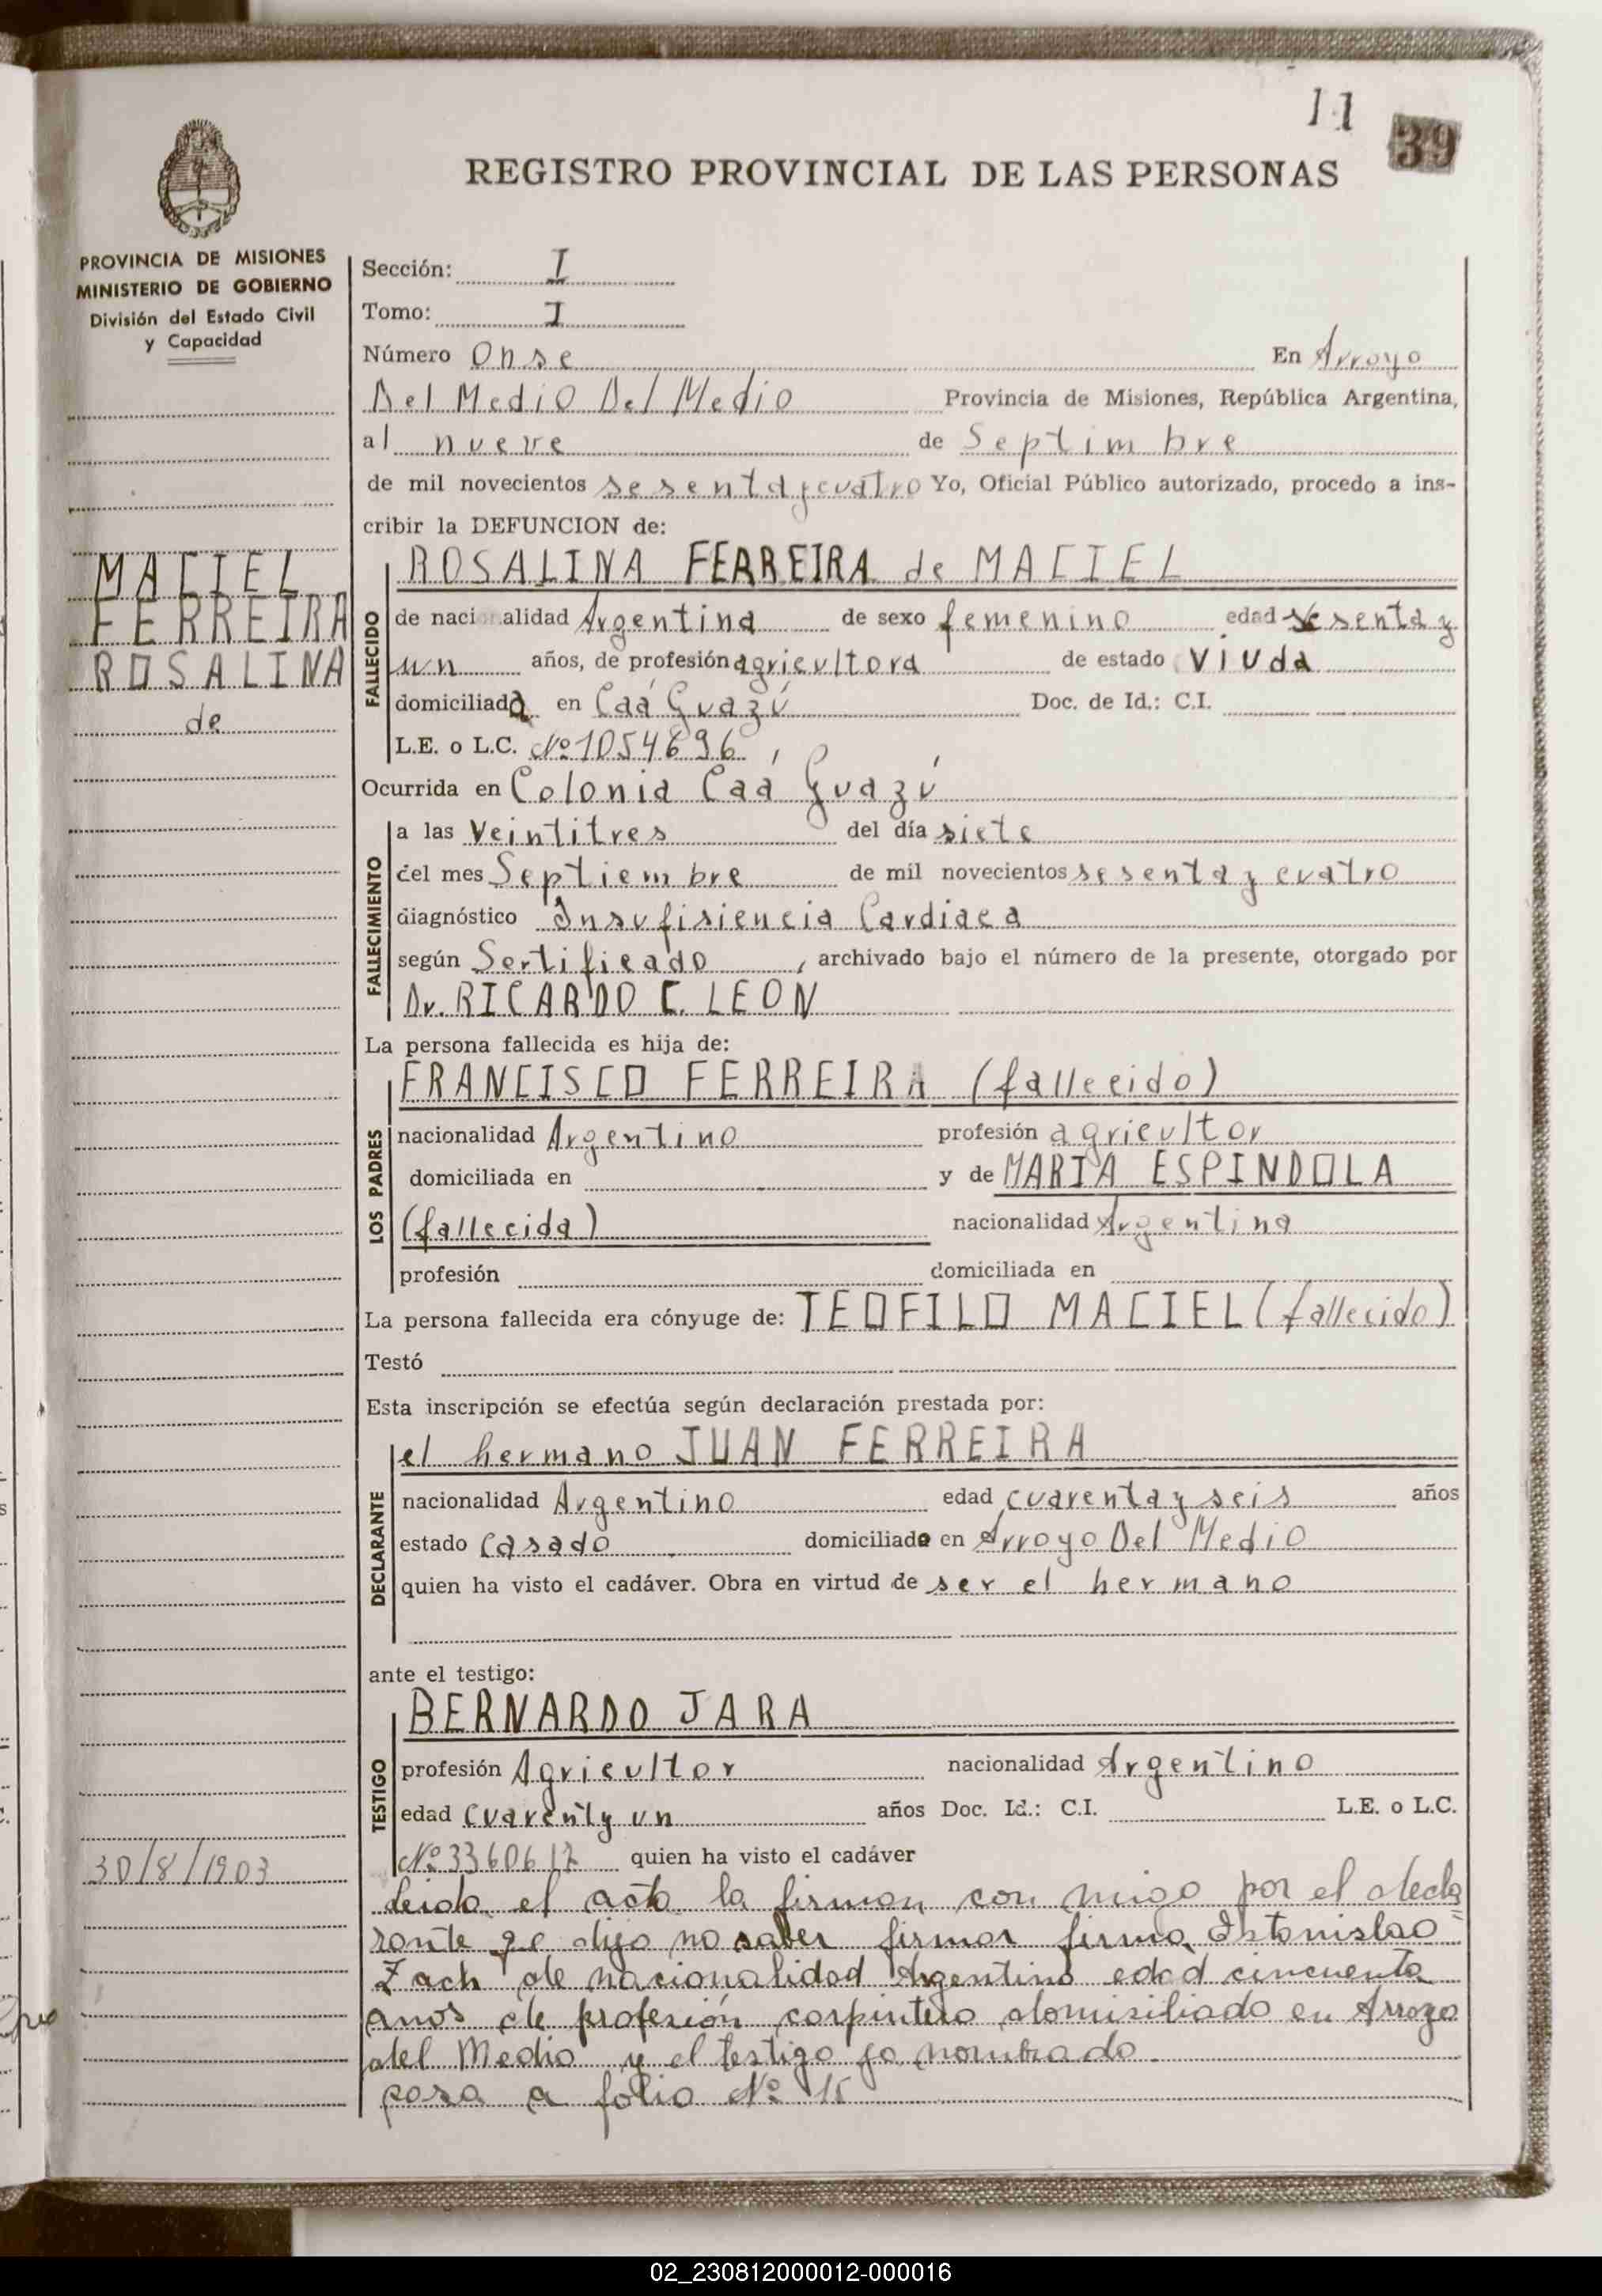 11
39
REGISTRO PROVINCIAL DE LAS PERSONAS
PROVINCIA DE MISIONES
MINISTERIO DE GOBIERNO
División del Estado Civil
y Capacidad
MACIEL
FERREIRA
ROSALINA
de
30/8/1903
Sección: I
Tomo: I
Número Onse En Arroyo
Del Medio Del Medio Provincia de Misiones, República Argentina,
al nueve de Septimbre
de mil novecientos sesenta y cuatro Yo, Oficial Público autorizado, procedo a ins-
cribir la DEFUNCION de:
FALLECIDO
ROSALINA FERREIRA de MACIEL
de nacionalidad Argentina de sexo femenino edad sesenta y
un años, de profesión agricultora de estado Viuda
domiciliada en Caá Guazú Doc. de Id.: C.I.
L.E. o L.C. Nº 1054696
Ocurrida en Colonia Caá Guazú
FALLECIMIENTO
a las Veintitres del día siete
del mes Septiembre de mil novecientos sesenta y cuatro
diagnóstico Insufisiencia Cardiaca
según Sertificado, archivado bajo el número de la presente, otorgado por
Dr. RICARDO C. LEON
La persona fallecida es hija de:
LOS PADRES
FRANCISCO FERREIRA (fallecido)
nacionalidad Argentino profesión agricultor
domiciliada en y de MARIA ESPINDOLA
(fallecida) nacionalidad Argentina
profesión domiciliada en
La persona fallecida era cónyuge de: TEOFILO MACIEL (fallecido)
Testó
Esta inscripción se efectúa según declaración prestada por:
DECLARANTE
el hermano JUAN FERREIRA
nacionalidad Argentino edad cuarenta y seis años
estado Casado domiciliado en Arroyo Del Medio
quien ha visto el cadáver. Obra en virtud de ser el hermano
ante el testigo:
TESTIGO
BERNARDO JARA
profesión Agricultor nacionalidad Argentino
edad Cuarenty un años Doc. Id.: C.I. L.E. o L.C.
Nº 3360617 quien ha visto el cadáver
leida el acta la firman con migo por el decla
rante qe dijo no saber firmar firma Estanislao
Zach de nacionalidad Argentino edad cincuenta
anos de profesión carpintero domisiliado en Arroyo
del Medio y el testigo ja nombrado
pasa a folio Nº 15
02_230812000012-000016